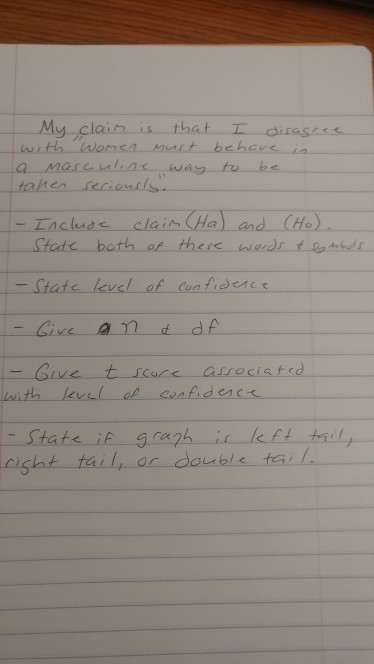 My claim is that I disagree
with "Women must behave in
a masculine way to be
taken seriously."
- Include claim (Ha) and (Ho).
State both of these words & symbols
- State level of confidence
- Give n & df
- Give t score associated
with level of confidence
- State if graph is left tail,
right tail, or double tail.